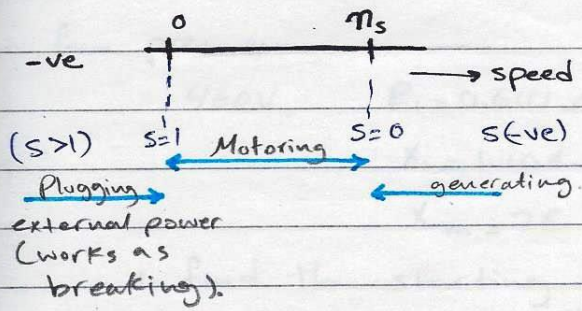 0 ns
-ve
→ speed
(s>1) s=1 Motoring s=0 s(-ve)
Plugging generating
external power
(works as
breaking).